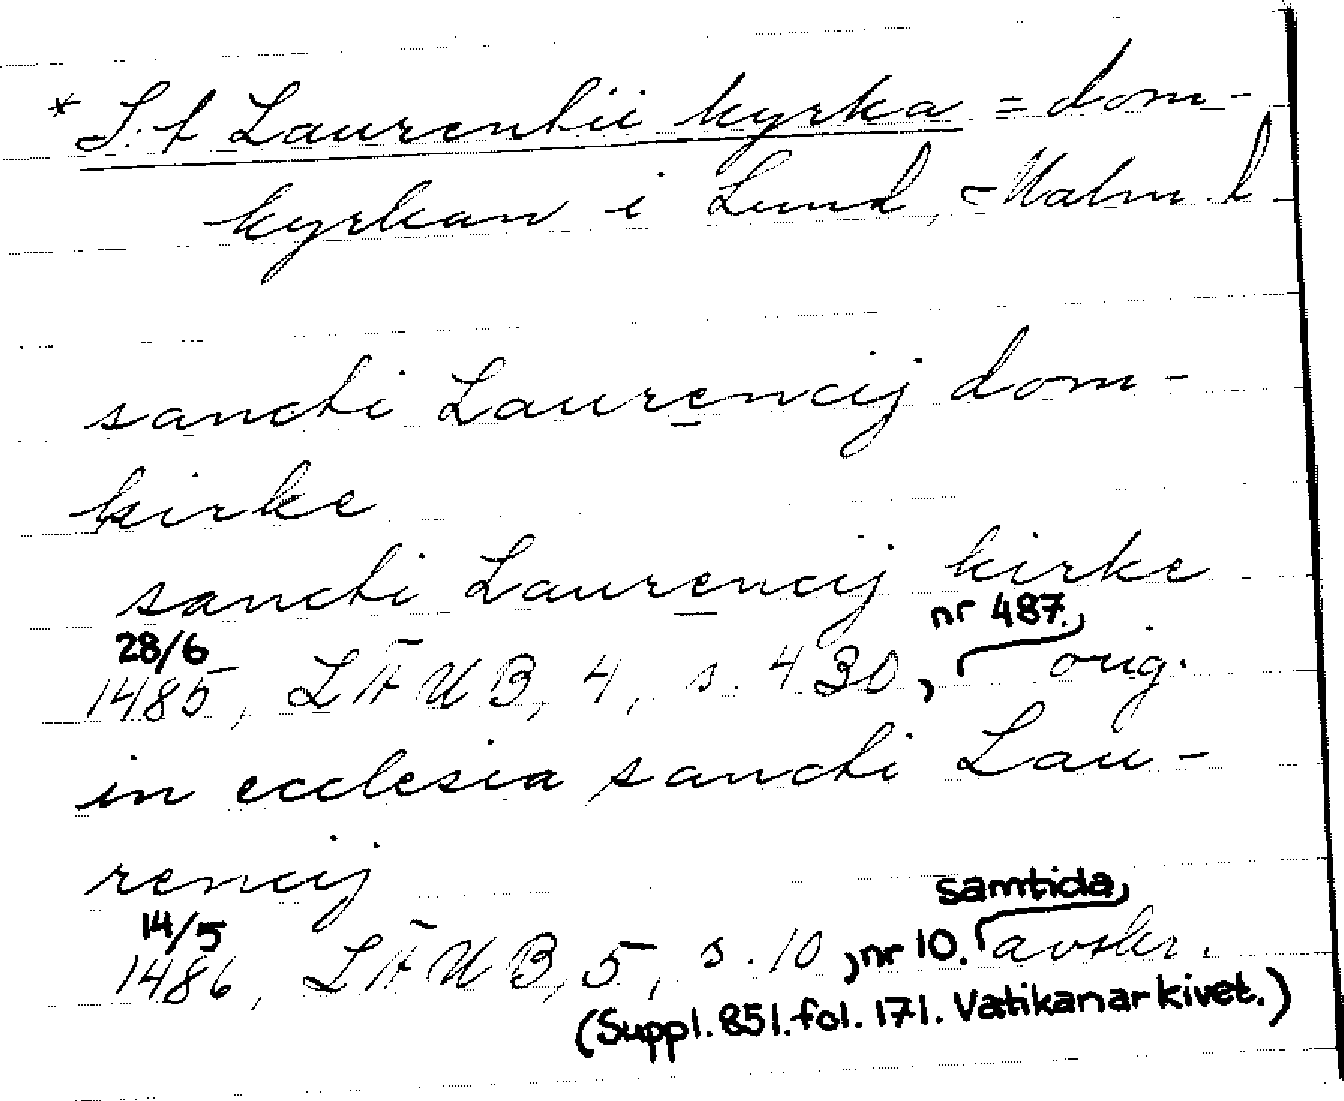 * S:t Laurentii kyrka = dom-
kyrkan i Lund, Malm. l
sancti Laurencij dom-
kirke
sancti Laurencij kirke
28/6 nr 487.
1485, LÄUB, 4, s. 430, orig.
in ecclesia sancti Lau-
rencij
14/5 samtida
1486, LÄUB, 5, s. 10, nr 10. avskr.
(Suppl. 851. fol. 171. Vatikanarkivet.)